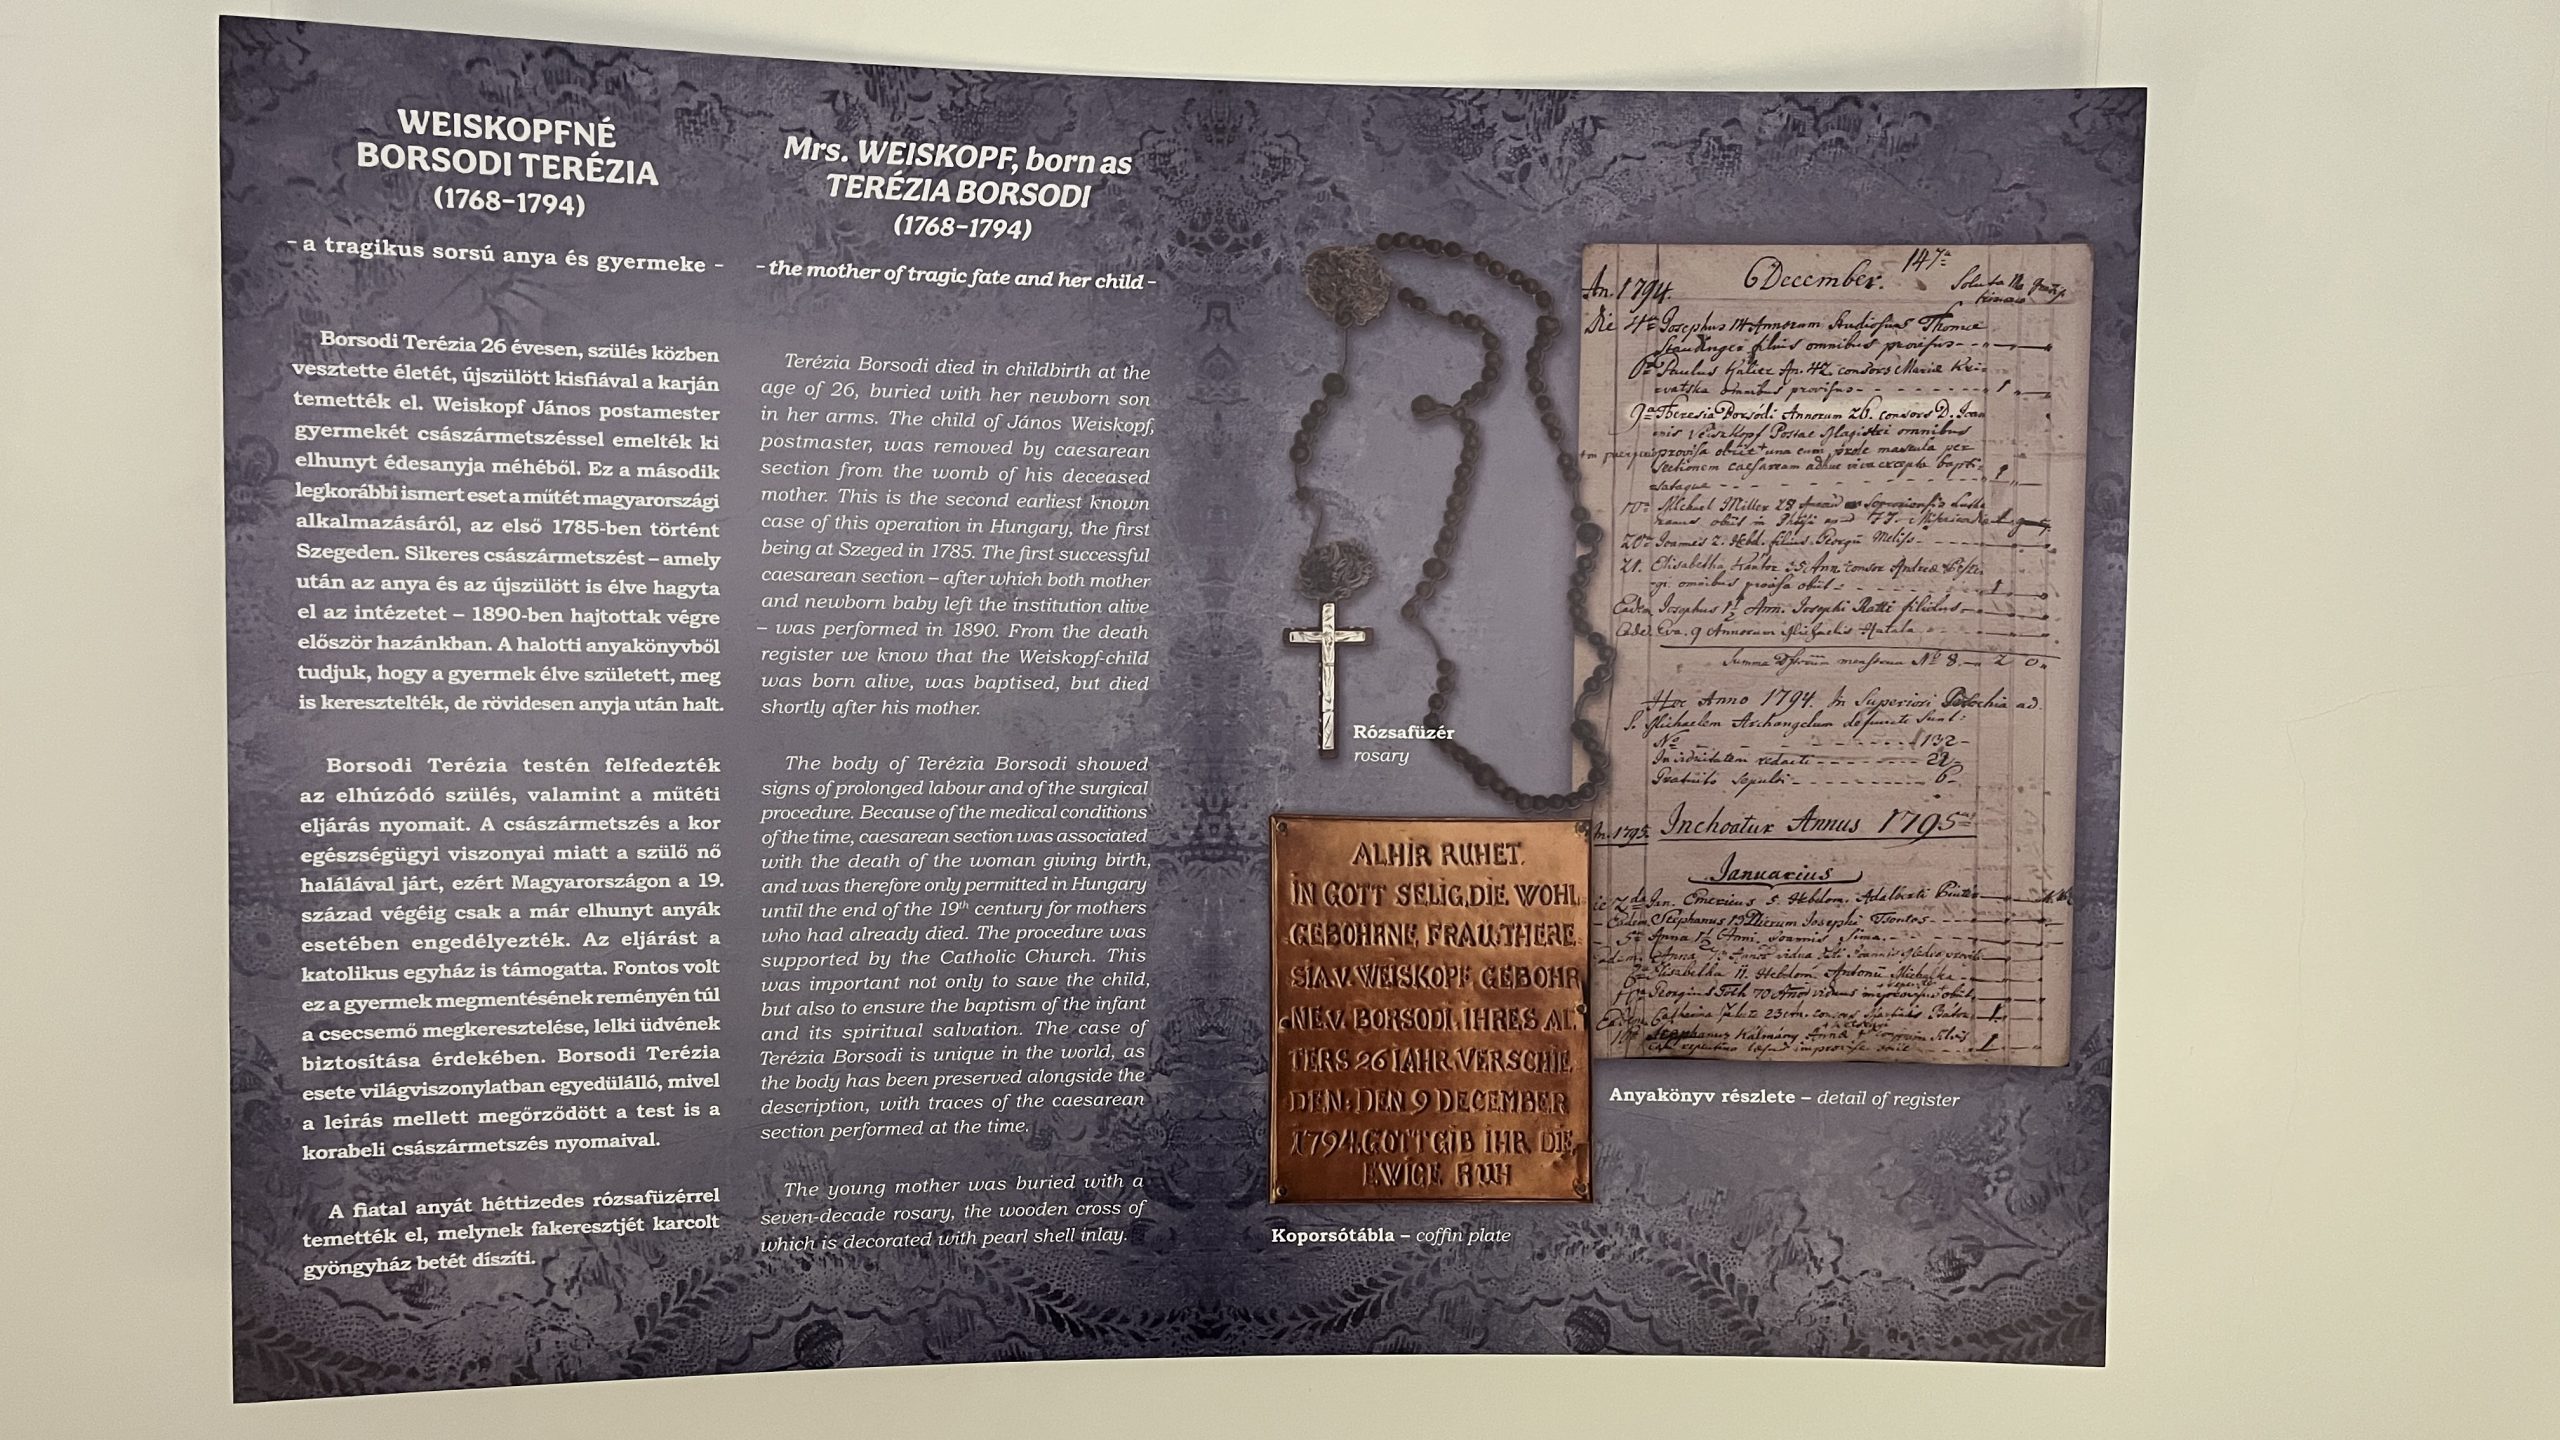 WEISKOPFNÉ
BORSODI TERÉZIA
(1768–1794)
– a tragikus sorsú anya és gyermeke –
Borsodi Terézia 26 évesen, szülés közben
vesztette életét, újszülött kisfiával a karján
temették el. Weiskopf János postamester
gyermekét császármetszéssel emelték ki
elhunyt édesanyja méhéből. Ez a második
legkorábbi ismert eset a műtét magyarországi
alkalmazásáról, az első 1785-ben történt
Szegeden. Sikeres császármetszést – amely
után az anya és az újszülött is élve hagyta
el az intézetet – 1890-ben hajtottak végre
először hazánkban. A halotti anyakönyvből
tudjuk, hogy a gyermek élve született, meg
is keresztelték, de rövidesen anyja után halt.
Borsodi Terézia testén felfedezték
az elhúzódó szülés, valamint a műtéti
eljárás nyomait. A császármetszés a kor
egészségügyi viszonyai miatt a szülő nő
halálával járt, ezért Magyarországon a 19.
század végéig csak a már elhunyt anyák
esetében engedélyezték. Az eljárást a
katolikus egyház is támogatta. Fontos volt
ez a gyermek megmentésének reményén túl
a csecsemő megkeresztelése, lelki üdvének
biztosítása érdekében. Borsodi Terézia
esete világviszonylatban egyedülálló, mivel
a leírás mellett megőrződött a test is a
korabeli császármetszés nyomaival.
A fiatal anyát héttizedes rózsafüzérrel
temették el, melynek fakeresztjét karcolt
gyöngyház betét díszíti.
Mrs. WEISKOPF, born as
TERÉZIA BORSODI
(1768–1794)
– the mother of tragic fate and her child –
Terézia Borsodi died in childbirth at the
age of 26, buried with her newborn son
in her arms. The child of János Weiskopf,
postmaster, was removed by caesarean
section from the womb of his deceased
mother. This is the second earliest known
case of this operation in Hungary, the first
being at Szeged in 1785. The first successful
caesarean section – after which both mother
and newborn baby left the institution alive
– was performed in 1890. From the death
register we know that the Weiskopf-child
was born alive, was baptised, but died
shortly after his mother.
The body of Terézia Borsodi showed
signs of prolonged labour and of the surgical
procedure. Because of the medical conditions
of the time, caesarean section was associated
with the death of the woman giving birth,
and was therefore only permitted in Hungary
until the end of the 19th century for mothers
who had already died. The procedure was
supported by the Catholic Church. This
was important not only to save the child,
but also to ensure the baptism of the infant
and its spiritual salvation. The case of
Terézia Borsodi is unique in the world, as
the body has been preserved alongside the
description, with traces of the caesarean
section performed at the time.
The young mother was buried with a
seven-decade rosary, the wooden cross of
which is decorated with pearl shell inlay.
Rózsafüzér
rosary
ALHIR RUHET.
IN GOTT SELIG,DIE WOHL
GEBOHRNE FRAU:THERE
SIA.V.WEISKOPF, GEBOHR
NE V. BORSODI, IHRES AL
TERS 26 IAHR VERSCHIE
DEN: DEN 9 DECEMBER
1794.GOTT GIB IHR DIE
EWIGE RUH
Koporsótábla – coffin plate
147
An. 1794. December.
Die 4ta Josephus 14 Annorum Studiosus Thomæ
filius omnibus provisus
Paulus An. 42 consors Mariæ
omnibus provisus
9a Theresia Borsódi Annorum 26. consors D. Joan
nis Veiszkopf Postae Magistri omnibus
provisa obiit una cum prole mascula per
sectionem caesaream adhuc viva excepta bapti-
sataque
Michael Miller 28
Joannes 2. Hebd. filius Georgii
21. Elisabetha Kántor 35 Ann consor Andreæ
omnibus provisa obiit
Eadem Josephus 1½ Ann. Josephi filius
Eade. Eva. 9 Annorum Michaelis Hatala
Summa No 8. 2 0
Hoc Anno 1794. In Superiori Parochia ad
S. Michaelem Archangelum defuncti sunt:
No 132
22
Gratuito sepulti 6
An. 1795. Inchoatur Annus 1795
Januarius
Emericus 5. Hebdom. Adalberti Pintér
Eadem Stephanus Josephi Tsontos
5ta Anna 1½ Anni. Joannis Sima
Anna vidua Joannis
Elisabetha 11. Hebdom. Antonii Michalka
Georgius Tóth 70 Anno viduus improvisus obiit
Anyakönyv részlete – detail of register